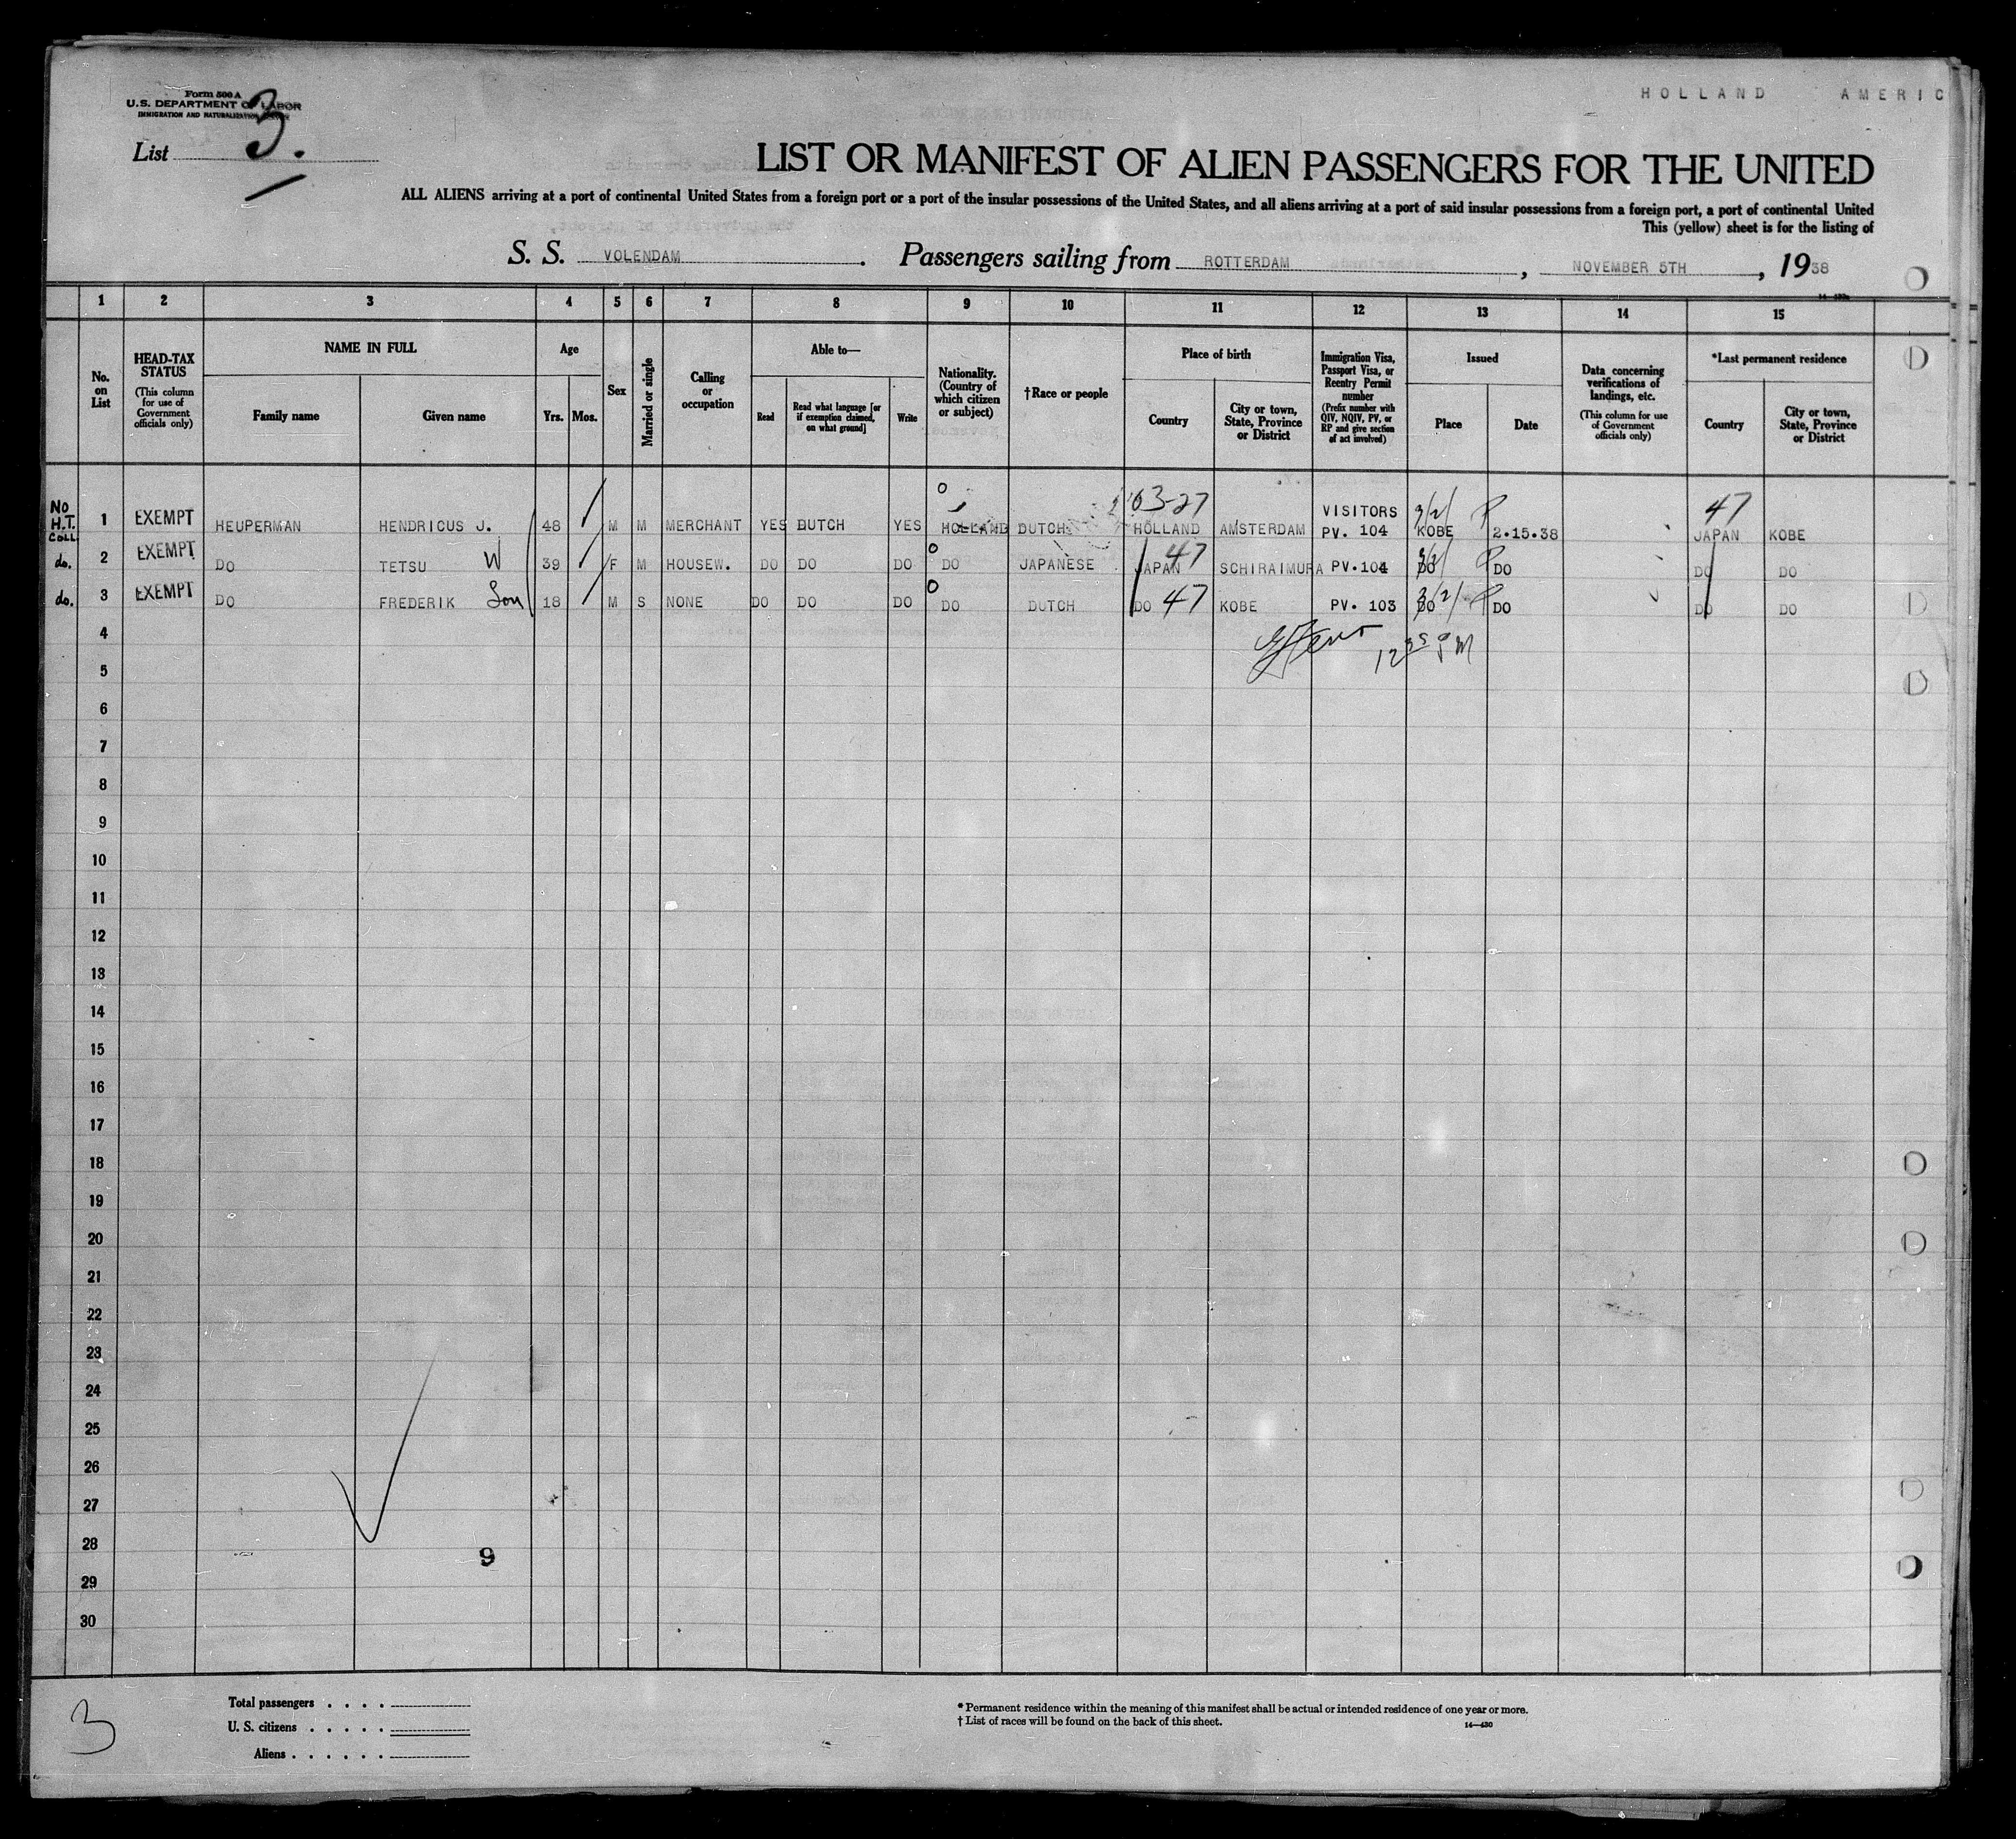 HOLLAND AMERIC
Form 500 A
U.S. DEPARTMENT OF LABOR
IMMIGRATION AND NATURALIZATION
List 3.
LIST OR MANIFEST OF ALIEN PASSENGERS FOR THE UNITED
ALL ALIENS arriving at a port of continental United States from a foreign port or a port of the insular possessions of the United States, and all aliens arriving at a port of said insular possessions from a foreign port, a port of continental United
This (yellow) sheet is for the listing of
S. S. VOLENDAM. Passengers sailing from ROTTERDAM, NOVEMBER 5TH, 1938
1 2 3 4 5 6 7 8 9 10 11 12 13 14 15
No. on List
HEAD-TAX STATUS
(This column for use of Government officials only)
NAME IN FULL
Family name
Given name
Age
Yrs.
Mos.
Sex
Married or single
Calling or occupation
Able to—
Read
Read what language [or if exemption claimed, on what ground]
Write
Nationality. (Country of which citizen or subject)
†Race or people
Place of birth
Country
City or town, State, Province or District
Immigration Visa, Passport Visa, or Reentry Permit number
(Prefix number with QIV, NQIV, PV, or RP and give section of act involved)
Issued
Place
Date
Data concerning verifications of landings, etc.
(This column for use of Government officials only)
*Last permanent residence
Country
City or town, State, Province or District
63-27 VISITORS 3/2/ P 47
No H.T. COLL 1 EXEMPT HEUPERMAN HENDRICUS J. 48 M M MERCHANT YES DUTCH YES HOLLAND DUTCH HOLLAND AMSTERDAM PV. 104 KOBE 2.15.38 JAPAN KOBE
do. 2 EXEMPT DO TETSU W 39 F M HOUSEW. DO DO DO DO JAPANESE JAPAN 47 SCHIRAIMURA PV.104 DO 3/2/ P DO DO DO
do. 3 EXEMPT DO FREDERIK Son 18 M S NONE DO DO DO DO DUTCH DO 47 KOBE PV. 103 DO 3/2/ P DO DO DO
4
12 35 PM
5
6
7
8
9
10
11
12
13
14
15
16
17
18
19
20
21
22
23
24
25
26
27
28
9
29
30
3
Total passengers . . . .
U. S. citizens . . . . .
Aliens . . . . . .
* Permanent residence within the meaning of this manifest shall be actual or intended residence of one year or more.
† List of races will be found on the back of this sheet.
14—430